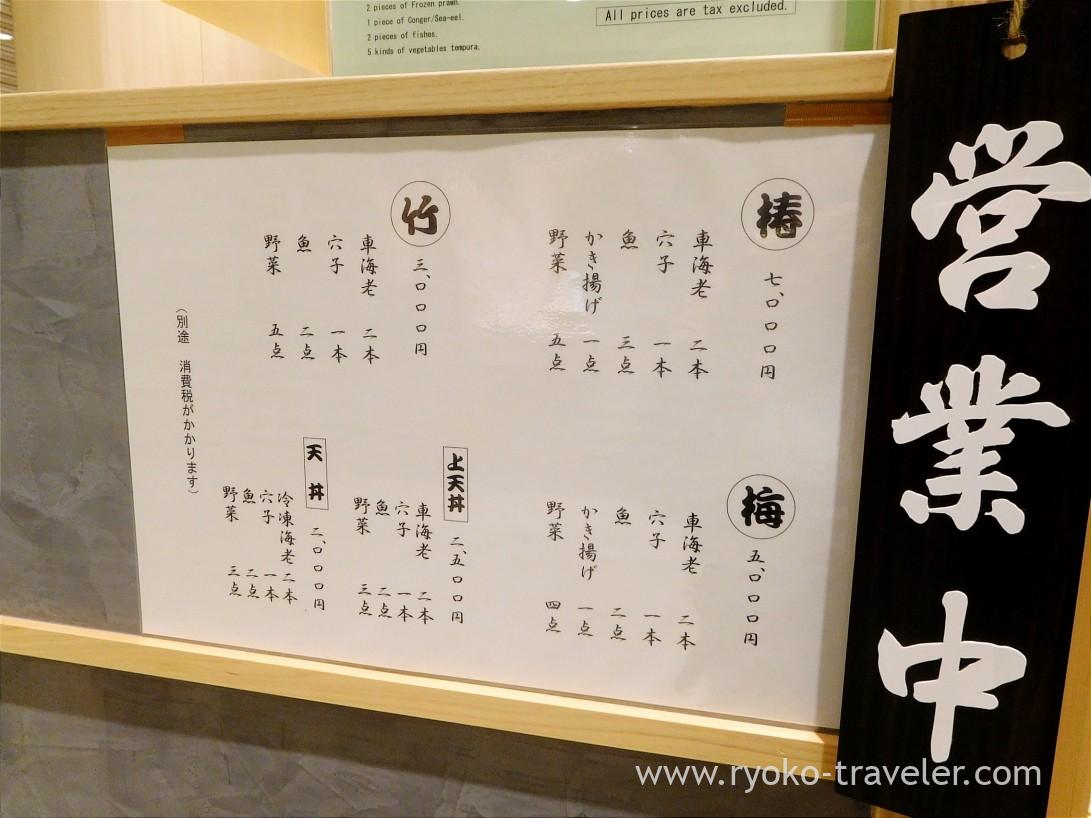 2 pieces of Frozen prawn.
1 piece of Conger/Sea-eel.
2 pieces of fishes.
5 kinds of vegetables tempura.
All prices are tax excluded.
営業中
椿
七、〇〇〇円
車海老 二本
穴子 一本
魚 三点
かき揚げ 一点
野菜 五点
竹
三、〇〇〇円
車海老 二本
穴子 一本
魚 二点
野菜 五点
(別途 消費税がかかります)
梅
五、〇〇〇円
車海老 二本
穴子 一本
魚 二点
かき揚げ 一点
野菜 四点
上天丼
二、五〇〇円
車海老 二本
穴子 一本
魚 二点
野菜 三点
天丼
二、〇〇〇円
冷凍海老 二本
穴子 一本
魚 二点
野菜 三点
www.ryoko-traveler.com